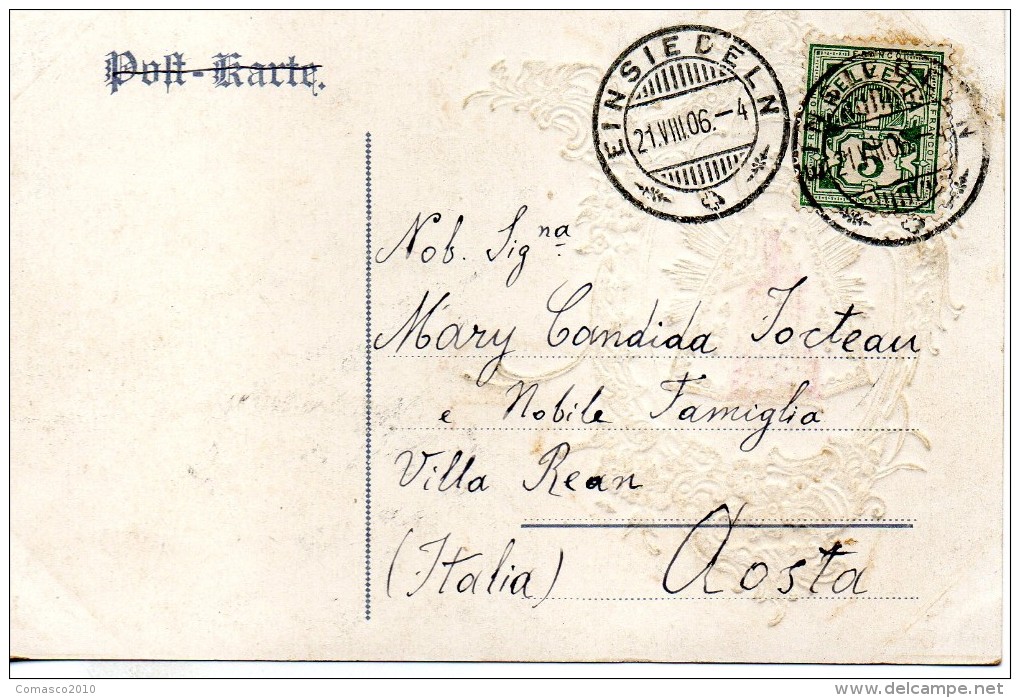 Post-Karte.
EINSIEDELN
21.VIII.06.-4
HELVETIA
5
Nob. Signa
Mary Candida Jocteau
e Nobile Famiglia
Villa Rean
(Italia) Aosta
Comasco2010
www.delcampe.net